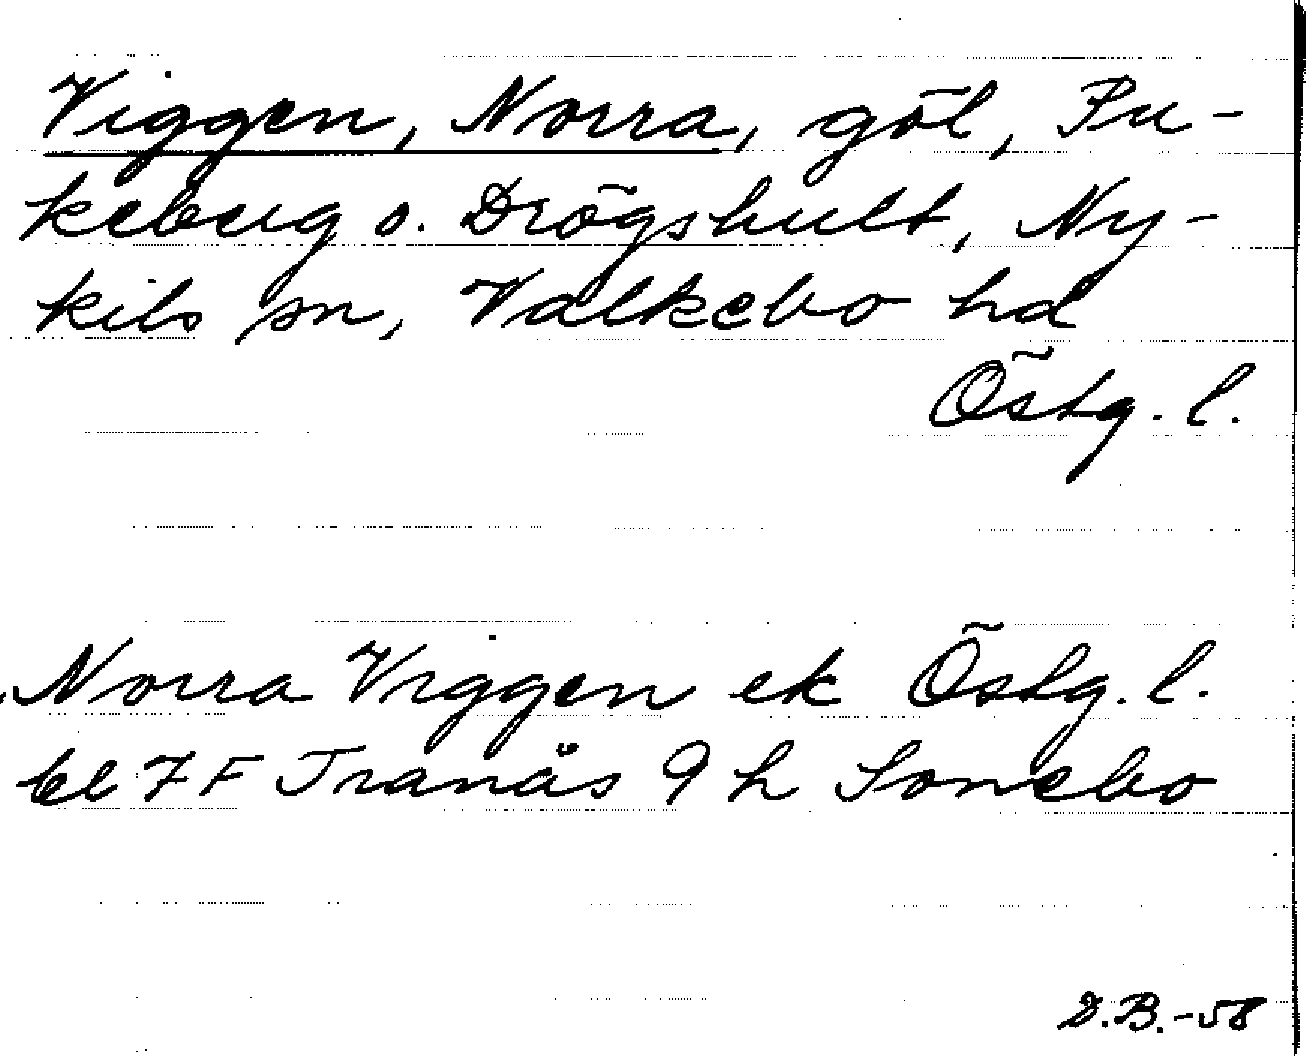 Viggen, Norra, göl, Pu-
keberg o. Drögshult, Ny-
kils sn, Valkebo hd
Östg. l.
Norra Viggen ek Östg. l.
bl 7 F Tranås 9 h Sonebo
D.B.-58